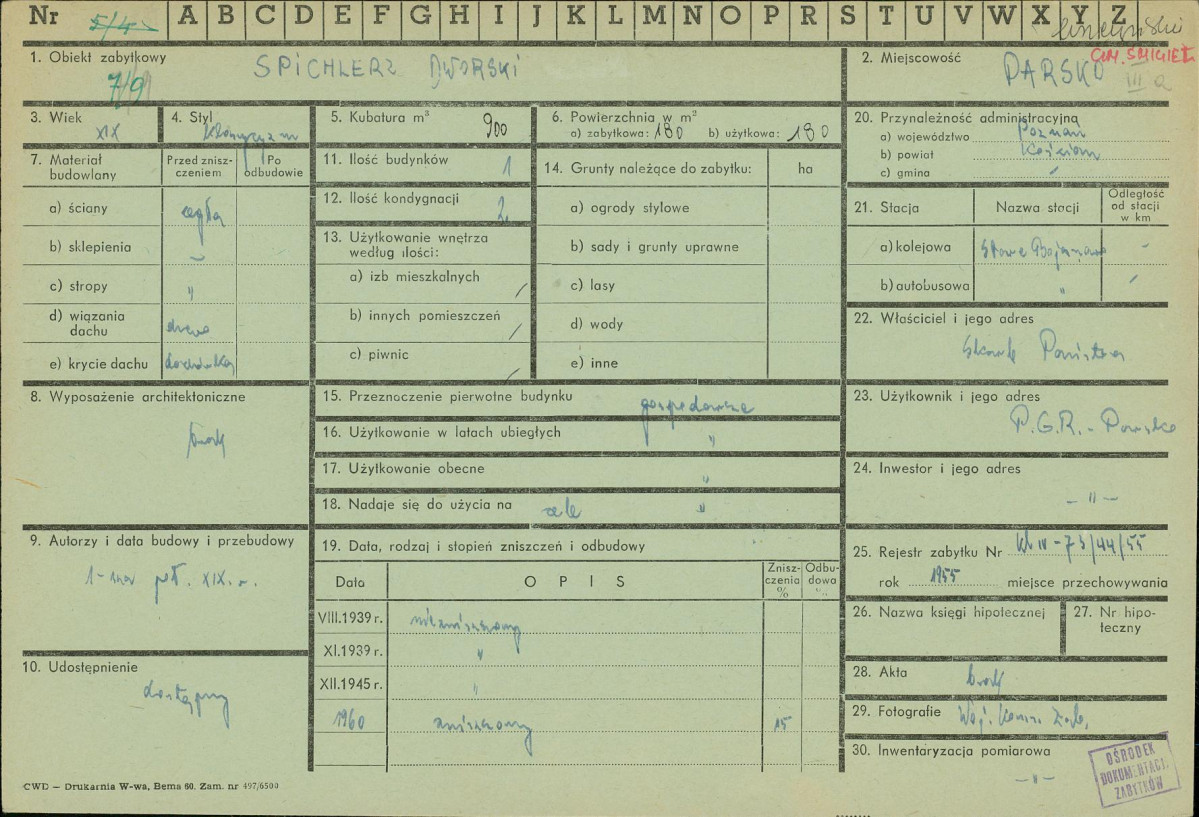 Nr 5/4 A B C D E F G H I J K L M N O P R S T U V W X Y Z
1. Obiekt zabytkowy SPICHLERZ DWORSKI
7/9
2. Miejscowość PARSKO
GM. ŚMIGIEL
III a
3. Wiek XIX
4. Styl
5. Kubatura m³ 900
6. Powierzchnia w m²
a) zabytkowa: 180 b) użytkowa: 180
20. Przynależność administracyjna
a) województwo Poznań
b) powiat Kościan
c) gmina
7. Materiał budowlany
Przed zniszczeniem
Po odbudowie
a) ściany cegła
b) sklepienia –
c) stropy "
d) wiązania dachu drewno
e) krycie dachu dachówka
11. Ilość budynków 1
12. Ilość kondygnacji 2
13. Użytkowanie wnętrza według ilości:
a) izb mieszkalnych /
b) innych pomieszczeń /
c) piwnic /
14. Grunty należące do zabytku: ha
a) ogrody stylowe
b) sady i grunty uprawne
c) lasy
d) wody
e) inne
21. Stacja Nazwa stacji Odległość od stacji w km
a) kolejowa Stare Bojanowo -
b) autobusowa "
22. Właściciel i jego adres
Skarb Państwa
8. Wyposażenie architektoniczne
brak
15. Przeznoczenie pierwotne budynku gospodarcze
16. Użytkowanie w latach ubiegłych "
17. Użytkowanie obecne "
18. Nadaje się do użycia na cele "
23. Użytkownik i jego adres
P.G.R. - Parsko
24. Inwestor i jego adres
– " –
9. Autorzy i data budowy i przebudowy
1-sza poł. XIX. w.
19. Data, rodzaj i stopień zniszczeń i odbudowy
Data OPIS Zniszczenia % Odbudowa %
VIII.1939 r. niezniszczony
XI.1939 r. "
XII.1945 r. "
1960 zniszczony 15
25. Rejestr zabytku Nr Kl IV-73/44/55
rok 1955 miejsce przechowywania
26. Nazwa księgi hipotecznej
27. Nr hipoteczny
10. Udostępnienie
dostępny
28. Akta brak
29. Fotografie Woj. Kons. Zab.
30. Inwentaryzacja pomiarowa
– " –
OŚRODEK
DOKUMENTACJI
ZABYTKÓW
CWD — Drukarnia W-wa, Bema 60. Zam. nr 497/6500